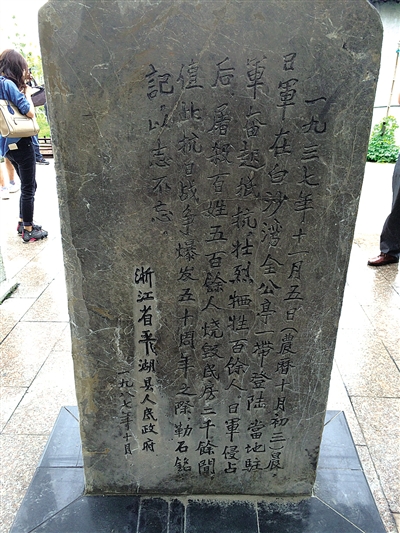 一九三七年十一月五日(農曆十月初三)晨
日軍在白沙湾全公亭一带登陆,當地駐
軍奋起抵抗,壮烈牺牲百餘人。日軍侵占
后,屠殺百姓五百餘人,烧毁民房二千餘間。
值此抗日战争爆发五十周年之际,勒石銘
記,以志不忘。
浙江省平湖县人民政府
一九八七年十月